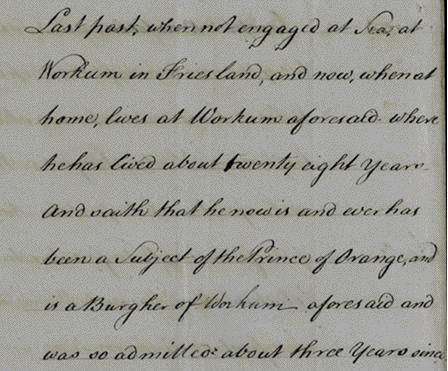 Last past, when not engaged at Sea, at
Workum in Friesland, and now, when at
home, lives at Workum aforesaid where
he has lived about twenty eight Years
And saith that he now is and ever has
been a Subject of the Prince of Orange, and
is a Burgher of Workum aforesaid and
was so admitted about three Years since